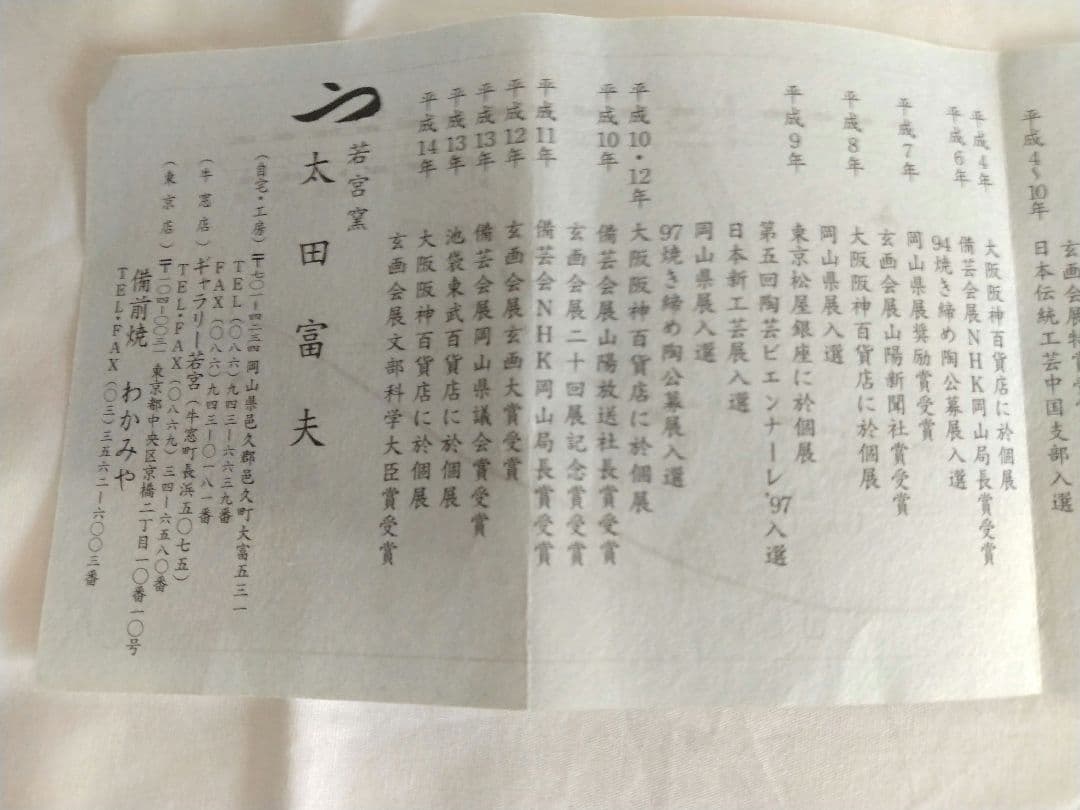 玄画会展特賞受賞
平成4~10年
日本伝統工芸中国支部入選
大阪阪神百貨店に於個展
平成4年
備芸会展NHK岡山局長賞受賞
平成6年
94焼き締め陶公募展入選
岡山県展奨励賞受賞
平成7年
玄画会展山陽新聞社賞受賞
大阪阪神百貨店に於個展
平成8年
岡山県展入選
東京松屋銀座に於個展
平成9年
第五回陶芸ビエンナーレ'97入選
日本新工芸展入選
岡山県展入選
97焼き締め陶公募展入選
平成10・12年
大阪阪神百貨店に於個展
平成10年
備芸会展山陽放送社長賞受賞
玄画会展二十回展記念賞受賞
平成11年
備芸会NHK岡山局長賞受賞
平成12年
玄画会展玄画大賞受賞
平成13年
備芸会展岡山県議会賞受賞
平成13年
池袋東武百貨店に於個展
平成14年
大阪阪神百貨店に於個展
玄画会展文部科学大臣賞受賞
若宮窯
太田富夫
(自宅・工房)〒七〇一ー四二三四 岡山県邑久郡邑久町大富五三一
TEL(〇八六)九四三ー六六三九番
FAX(〇八六)九四三ー〇一八一番
(牛窓店)ギャラリー若宮(牛窓町長浜五〇七五)
TEL・FAX(〇八六九)三四ー六五八〇番
(東京店)〒一〇四ー〇〇三一 東京都中央区京橋二丁目一〇番一〇号
備前焼 わかみや
TEL・FAX(〇三)三五六二ー六〇〇三番